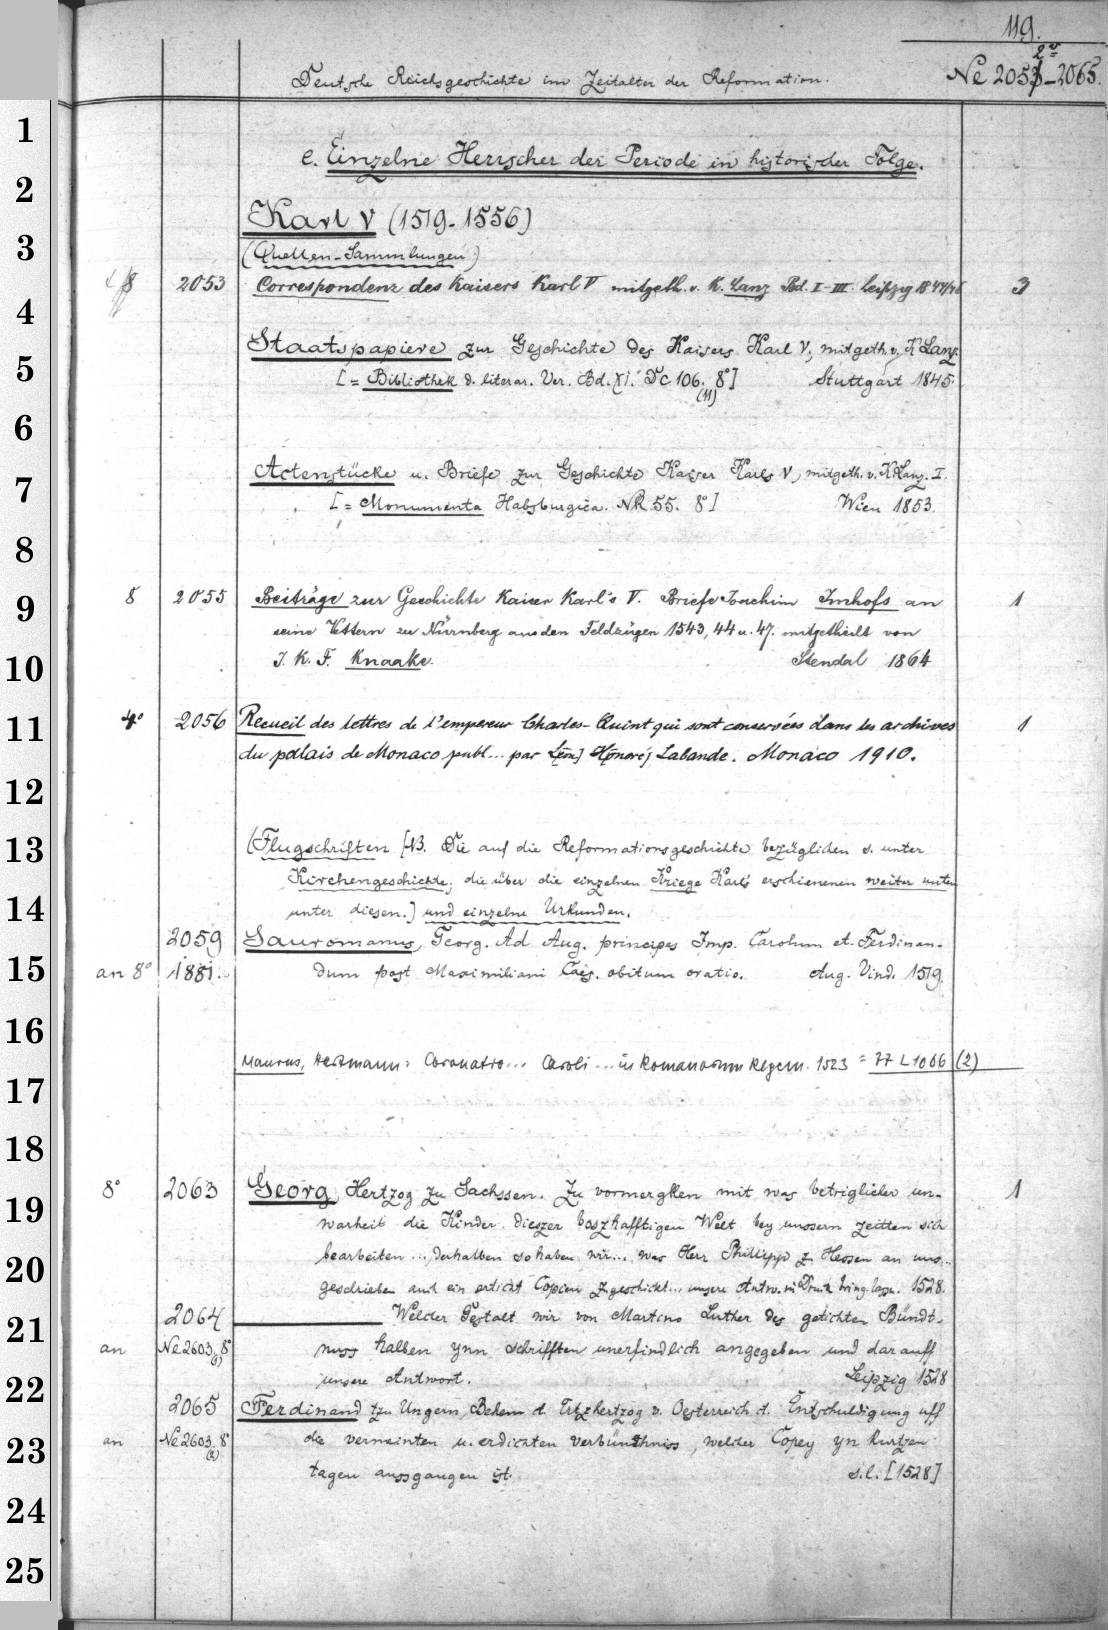 119.
Deutsche Reichsgeschichte im Zeitalter der Reformation.
Ne 2053-2065.
e. Einzelne Herrscher der Periode in historischer Folge.
Karl V (1519-1556)
(Quellen-Sammlungen)
8 2053 Correspondenz des Kaisers Karl V mitgeth. v. K. Lanz Bd. I-III Leipzig 1844/46 3
Staatspapiere zur Geschichte des Kaisers Karl V, mitgeth. v. K Lanz.
[= Bibliothek d. literar. Ver. Bd. XI. Dc 106. 8°] Stuttgart 1845.
(11)
Actenstücke u. Briefe zur Geschichte Kaiser Karls V, mitgeth. v. K Lanz. I.
[= Monumenta Habsburgica. NR 55. 8°] Wien 1853.
8 2055 Beiträge zur Geschichte Kaiser Karl's V. Briefe Joachim Imhofs an 1
seine Vettern zu Nürnberg aus den Feldzügen 1543, 44 u. 47. mitgetheilt von
J. K. F. Knaake. Stendal 1864
4° 2056 Recueil des lettres de l'empereur Charles-Quint qui sont conservées dans les archives 1
du palais de Monaco publ... par L[éon] H[onoré] Labande. Monaco 1910.
(Flugschriften [NB. Die auf die Reformationsgeschichte bezüglichen s. unter
Kirchengeschichte; die über die einzelnen Kriege Karls erschienenen weiter unten
unter diesen.] und einzelne Urkunden.
2059 Sauromanus, Georg. Ad Aug. principes Imp. Carolum et Ferdinan-
an 8° 1881. dum post Maximiliani Caes. obitum oratio. Aug. Vind. 1519.
Maurus, Hartmann: Coronatio... Caroli... in Romanorum Regem. 1523 = 77 L 1066 (2)
8° 2063 Georg Hertzog zu Sachssen. Zu vormergken mit was betriglicher un- 1
warheit die Kinder dieszer boszhafftigen Welt bey unssern zeitten sich
bearbeiten..., derhalben so haben wir... was Herr Phillipp z. Hessen an uns..
geschrieben auch ein erticht Copien zgeschickt... unsere Antw. in Druck bring. lassn. 1528.
2064 Welcher Gestalt wir von Martino Luther des getichten Bündt-
an Ne 2603, 8° nuss halben ynn schrifften unerfindlich angegeben und darauff
(1)
unsere Antwort. Leipzig 1528
2065 Ferdinand tzu Ungern, Behem d. Ertzhertzog v. Oesterreich d. Entschuldigung uff
an Ne 2603. 8° die vermeinten u. erdichten verbündtniss, welcher Copey yn kurtzen
(2)
tagen aussgangen ist. s.l. [1528]